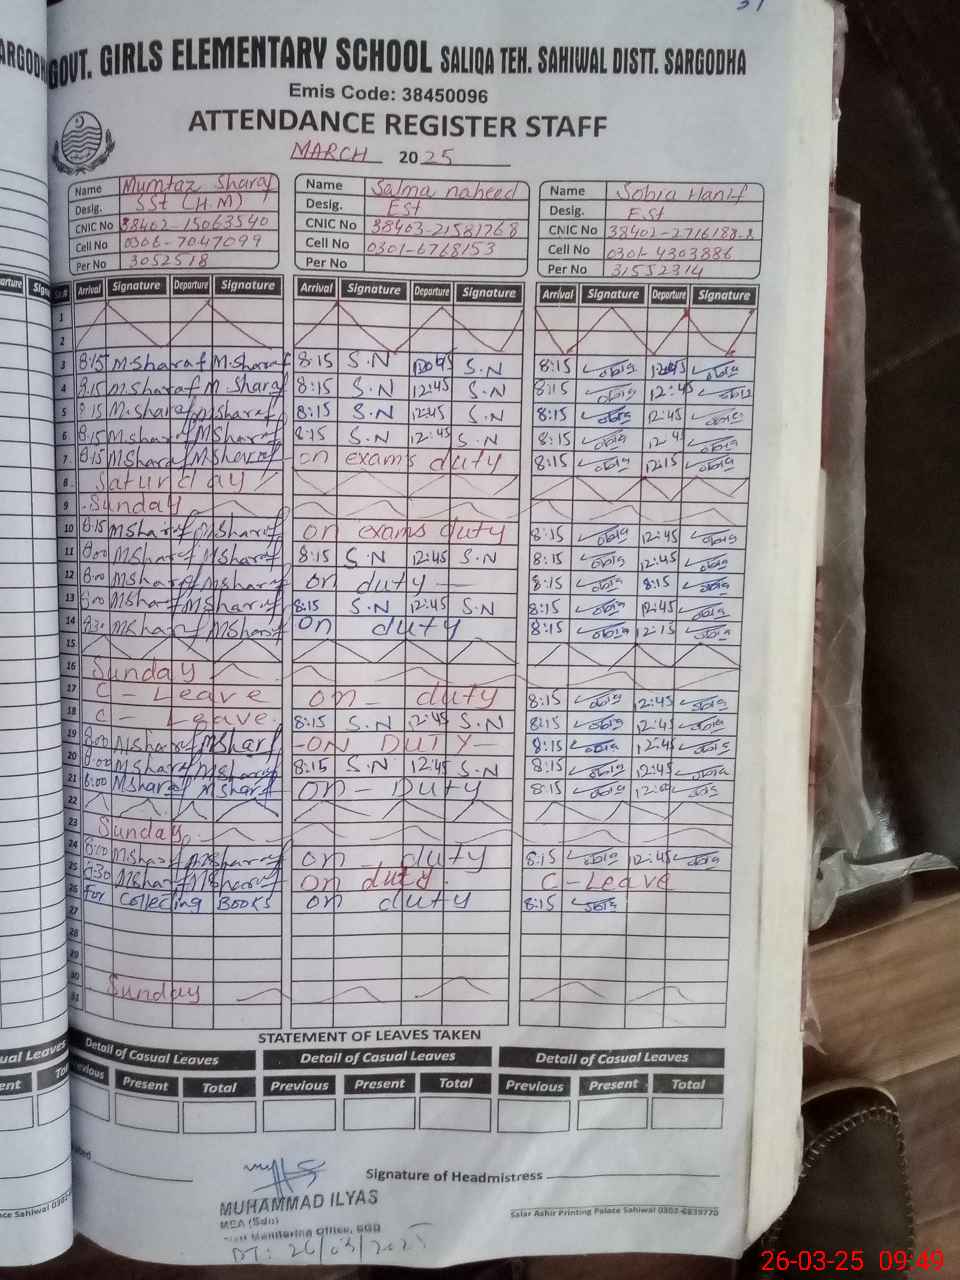 GOVT. GIRLS ELEMENTARY SCHOOL SALIQA TEH. SAHIWAL DISTT. SARGODHA
Emis Code: 38450096
ATTENDANCE REGISTER STAFF
MARCH 2025
Name Mumtaz Sharaf Name Salma naheed Name Sobia Hanif
Desig. SSt (H.M) Desig. Est Desig. Est
CNIC No 38402-15063540 CNIC No 38403-21581768 CNIC No 38402-2716188-8
Cell No 0306-7047099 Cell No 0301-6768153 Cell No 0301-4303886
Per No 3052518 Per No Per No 31552314
Arrival Signature Departure Signature Arrival Signature Departure Signature Arrival Signature Departure Signature
1
2
3 8:15 M.Sharaf M.Sharaf 8:15 S.N S.N 8:15
4 8:15 M.Sharaf M.Sharaf 8:15 S.N 12:45 S.N 8:15 12:45
5 8:15 M.Sharaf MSharaf 8:15 S.N 12:45 S.N 8:15 12:45
6 8:15 M.Sharaf MSharaf 8:15 S.N 12:45 S.N 8:15 12:45
7 8:15 MSharaf MSharaf on exams duty 8:15 12:15
8 Saturday
9 Sunday
10 8:15 MSharaf MSharaf on exams duty 8:15 12:45
11 8:00 MSharaf MSharaf 8:15 S.N 12:45 S.N 8:15 12:45
12 8:00 MSharaf MSharaf on duty 8:15 8:15
13 8:00 MSharaf MSharaf 8:15 S.N 12:45 S.N 8:15 12:45
14 8:30 MSharaf MSharaf on duty 8:15 12:15
15
16 Sunday
17 C - Leave on duty 8:15 12:45
18 C - Leave 8:15 S.N 12:45 S.N 8:15 12:45
19 8:00 MSharaf MSharf -ON DUTY- 8:15 12:45
20 8:00 MSharaf MSharaf 8:15 S.N 12:45 S.N 8:15 12:45
21 8:00 MSharaf MSharaf on - Duty 8:15
22
23 Sunday
24 8:00 MSharaf MSharaf on duty 8:15 12:45
25 MSharaf MSharaf on duty. C-Leave
26 For collecting BOOKS on duty 8:15
27
28
29
30 Sunday
31
STATEMENT OF LEAVES TAKEN
Detail of Casual Leaves Detail of Casual Leaves Detail of Casual Leaves
Previous Present Total Previous Present Total Previous Present Total
Signature of Headmistress
MUHAMMAD ILYAS
MEA (Sdo)
Monitoring Office, SGD
DT: 26/03/2025
Salar Ashir Printing Palace Sahiwal 0302-6839770
26-03-25 09:49